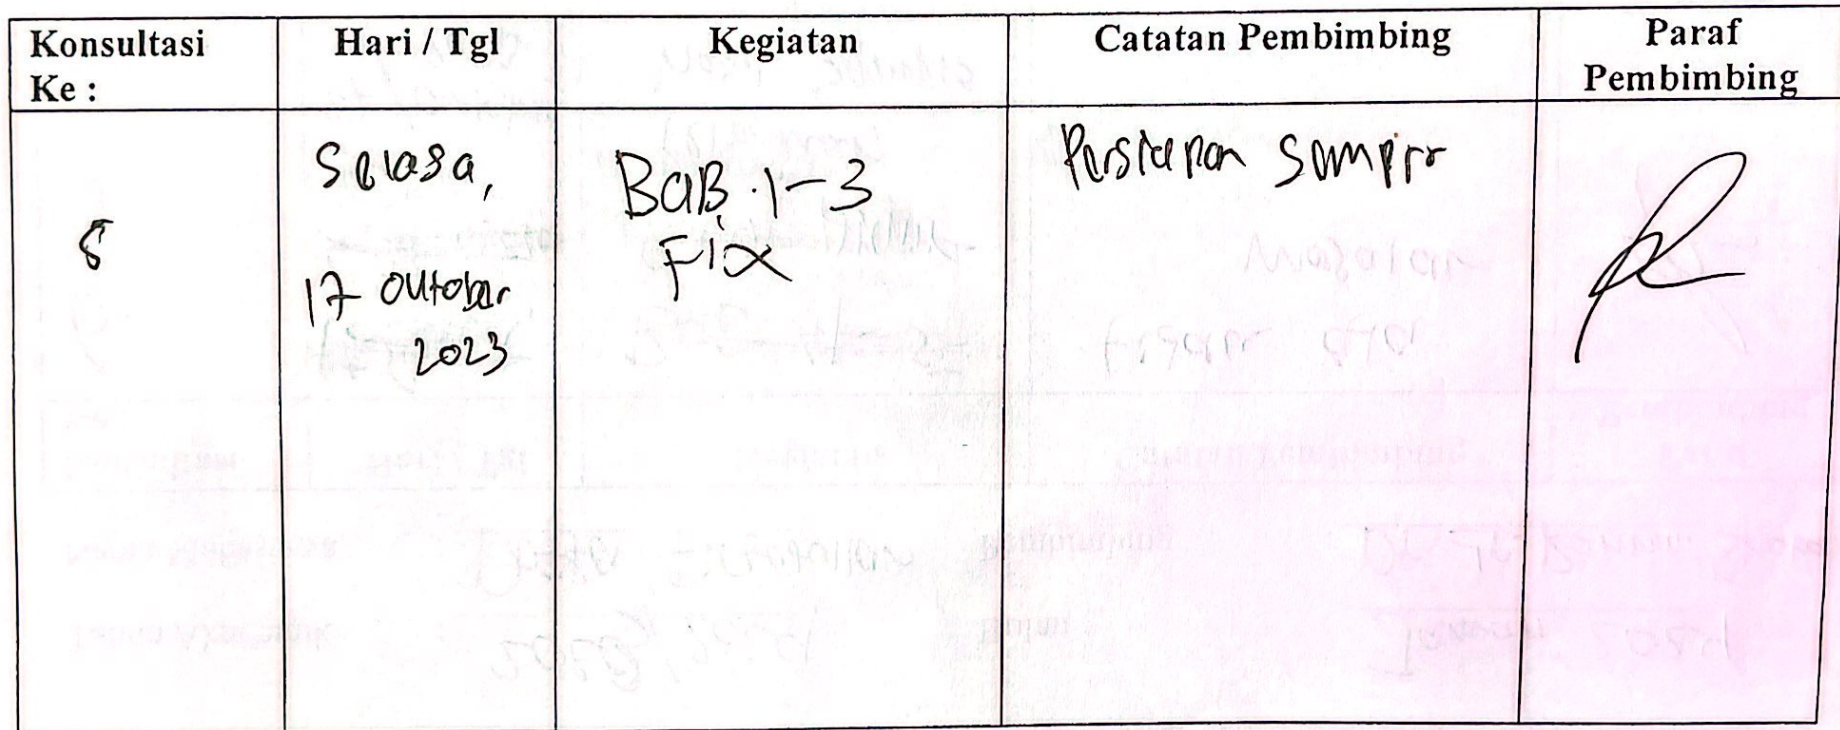 Konsultasi Ke :
Hari / Tgl
Kegiatan
Catatan Pembimbing
Paraf Pembimbing
8
Selasa,
17 Oktober
2023
BAB 1-3
Fix
Persiapan Sempro